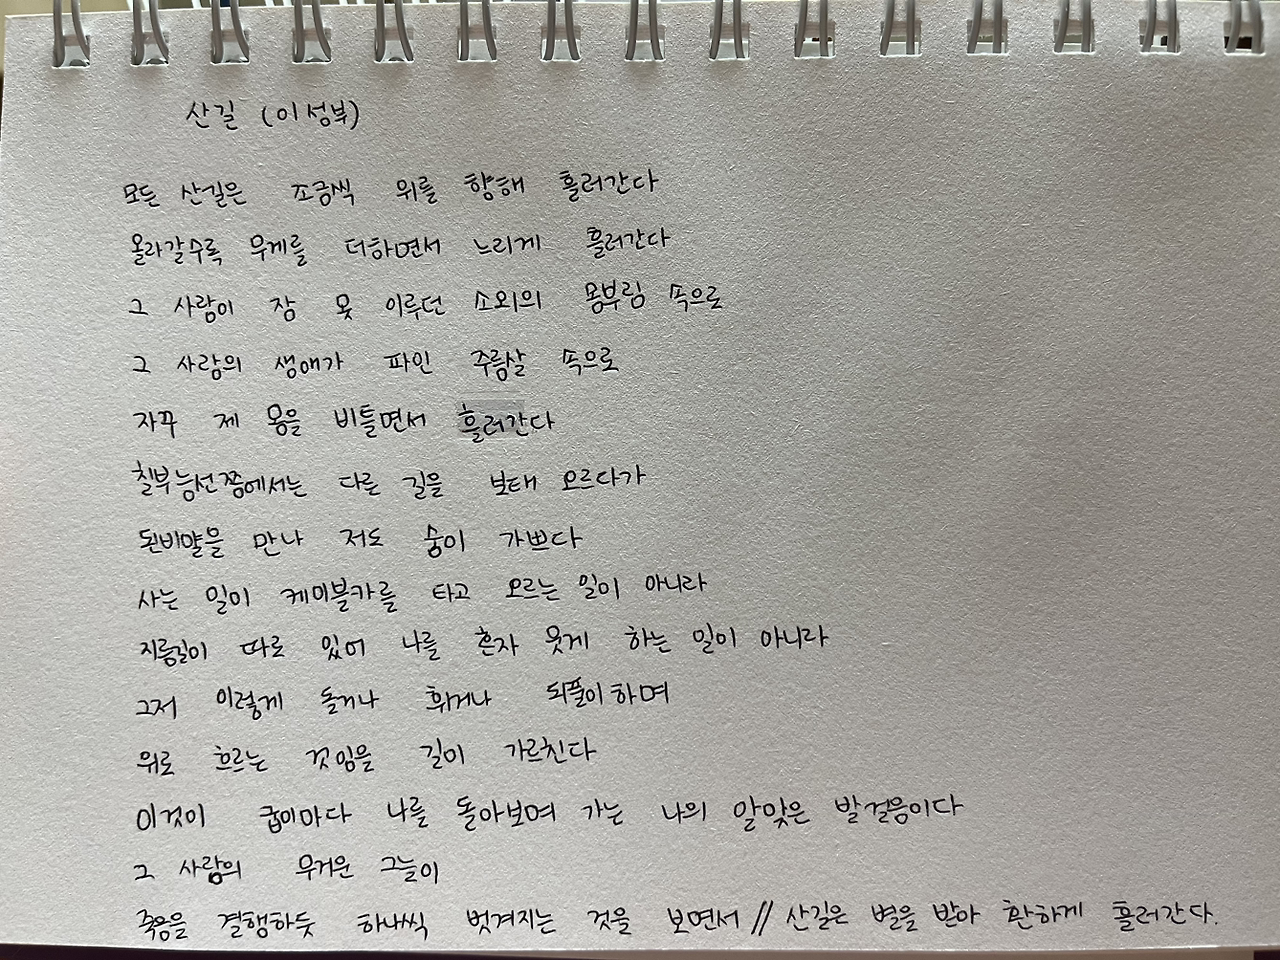 산길 (이성부)
모든 산길은 조금씩 위를 향해 흘러간다
올라갈수록 무게를 더하면서 느리게 흘러간다
그 사람이 잠 못 이루던 소외의 몸부림 속으로
그 사람의 생애가 파인 주름살 속으로
자꾸 제 몸을 비틀면서 흘러간다
칠부능선쯤에서는 다른 길을 보태 오르다가
된비알을 만나 저도 숨이 가쁘다
사는 일이 케이블카를 타고 오르는 일이 아니라
지름길이 따로 있어 나를 혼자 웃게 하는 일이 아니라
그저 이렇게 돌거나 휘거나 되풀이하며
위로 흐르는 것임을 길이 가르친다
이것이 굽이마다 나를 돌아보며 가는 나의 알맞은 발걸음이다
그 사람의 무거운 그늘이
죽음을 결행하듯 하나씩 벗겨지는 것을 보면서 // 산길은 볕을 받아 환하게 흘러간다.